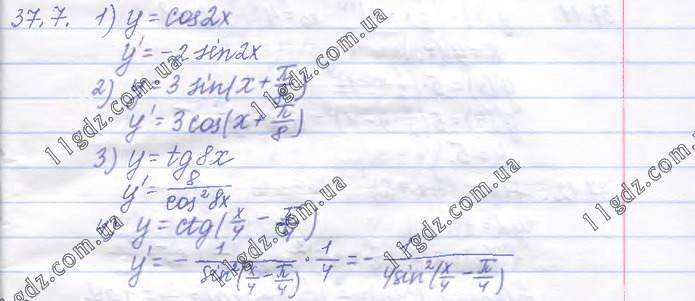 37.7. 1) y = cos2x
y' = -2 sin2x
2) y = 3 sin(x + π/8)
y' = 3 cos(x + π/8)
3) y = tg8x
y' = 8/cos²8x
y = ctg(x/4 - π/4)
y' = - 1/sin²(x/4 - π/4) · 1/4 = - 1/4sin²(x/4 - π/4)
11gdz.com.ua
11gdz.com.ua
11gdz.com.ua
11gdz.com.ua
11gdz.com.ua
11gdz.com.ua